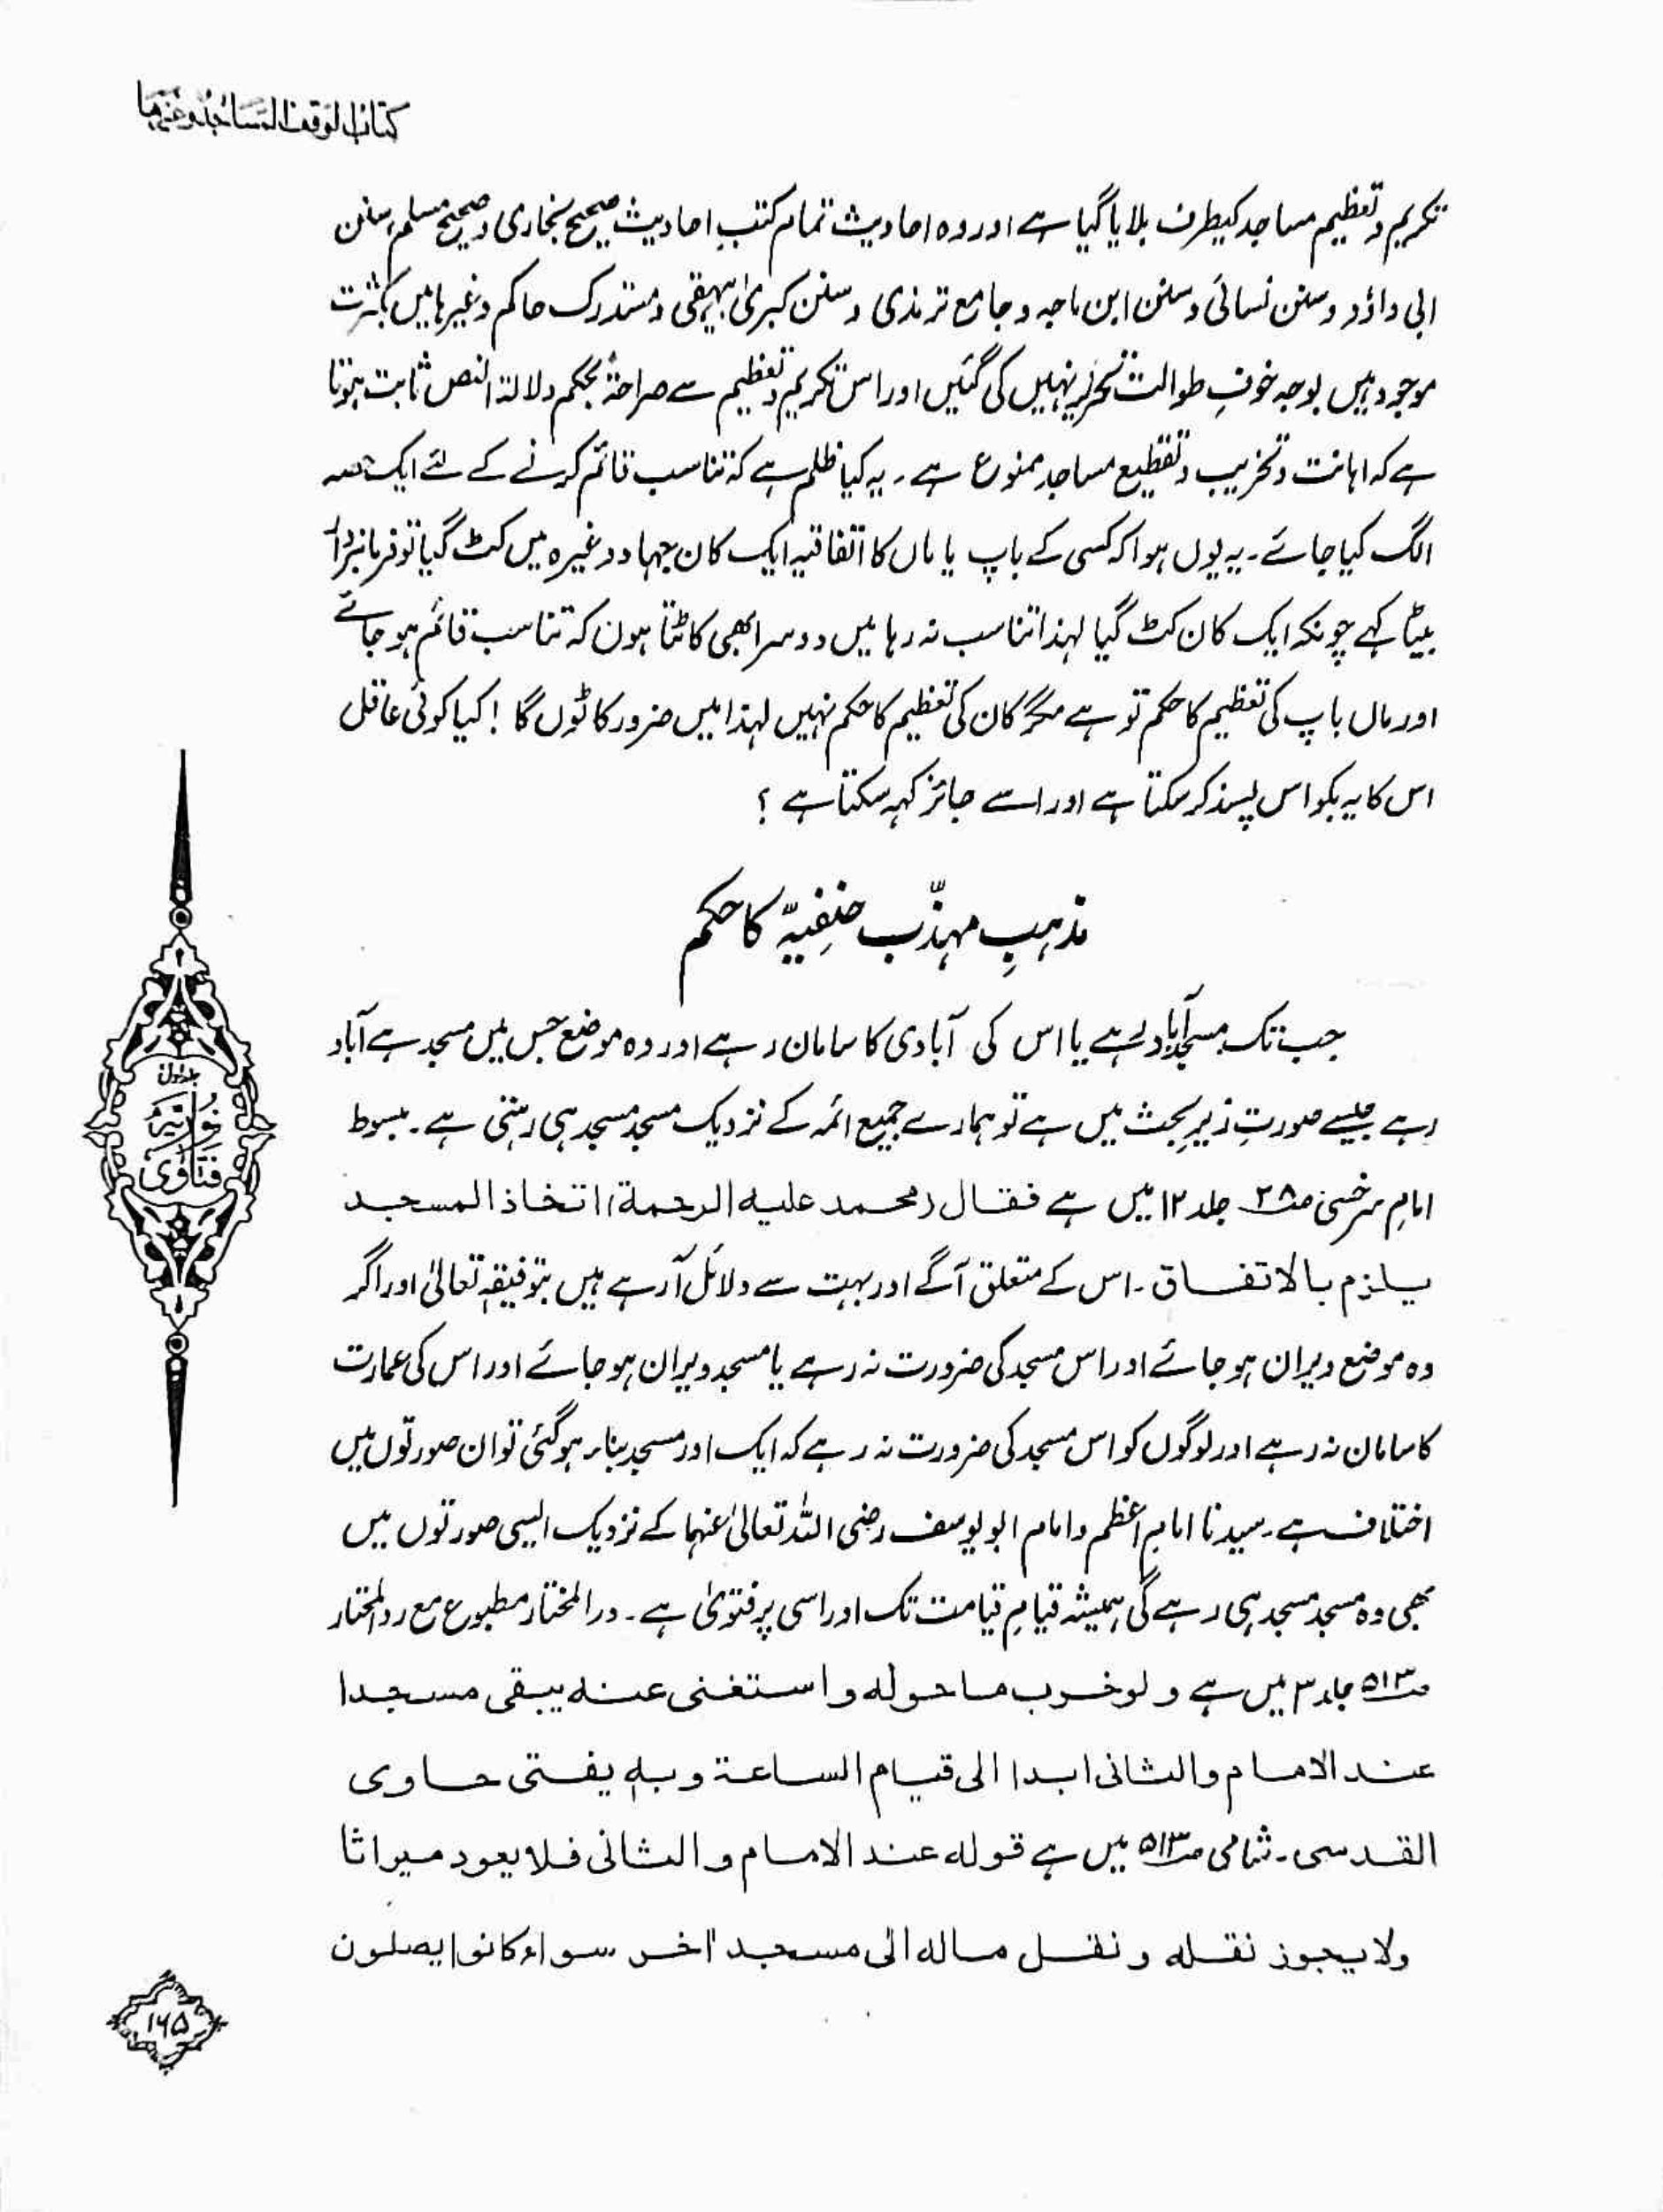 کتاب الوقف المساجد وغیرہا
تکریم و تعظیم مساجد کیطرف بلایا گیا ہے اور وہ احادیث تمام کتبِ احادیث صحیح بخاری و صحیح مسلم، سنن
ابی داؤد و سنن نسائی و سنن ابن ماجہ و جامع ترمذی و سنن کبریٰ بیہقی و مستدرک حاکم وغیرہا میں بکثرت
موجود ہیں بوجہ خوفِ طوالت تحریر نہیں کی گئیں اور اس تکریم و تعظیم سے صراحۃً بحکم دلالۃ النص ثابت ہوتا
ہے کہ اہانت و تخریب و تقطیع مساجد ممنوع ہے۔ یہ کیا ظلم ہے کہ تناسب قائم کرنے کے لئے ایک حصہ
الگ کیا جائے۔ یہ یوں ہوا کہ کسی کے باپ یا ماں کا اتفاقیہ ایک کان جہاد وغیرہ میں کٹ گیا تو فرمانبردار
بیٹا کہے چونکہ ایک کان کٹ گیا لہذا تناسب نہ رہا میں دوسرا بھی کاٹتا ہوں کہ تناسب قائم ہو جائے
اور ماں باپ کی تعظیم کا حکم تو ہے مگر کان کی تعظیم کا حکم نہیں لہذا میں ضرور کاٹوں گا ! کیا کوئی عاقل
اس کا یہ بکواس پسند کر سکتا ہے اور اسے جائز کہہ سکتا ہے ؟
مذہبِ مہذّب حنفیہّ کا حکم
جب تک مسجد آباد ہے یا اس کی آبادی کا سامان رہے اور وہ موضع جس میں مسجد ہے آباد
رہے جیسے صورتِ زیرِ بحث میں ہے تو ہمارے جمیع ائمہ کے نزدیک مسجد مسجد ہی رہتی ہے۔ مبسوط
امام سرخسی ص۲۸ جلد ۱۲ میں ہے فقال (محمد علیہ الرحمۃ) اتخاذ المسجد
یلزم بالاتفاق۔ اس کے متعلق آگے اور بہت سے دلائل آرہے ہیں بتوفیقہٖ تعالیٰ اور اگر
وہ موضع ویران ہو جائے اور اس مسجد کی ضرورت نہ رہے یا مسجد ویران ہو جائے اور اس کی عمارت
کا سامان نہ رہے اور لوگوں کو اس مسجد کی ضرورت نہ رہے کہ ایک اور مسجد بناء ہوگئی تو ان صورتوں میں
اختلاف ہے۔ سیدنا امام اعظم و امام ابو یوسف رضی اللہ تعالیٰ عنہما کے نزدیک ایسی صورتوں میں
بھی وہ مسجد مسجد ہی رہے گی ہمیشہ قیامِ قیامت تک اور اسی پر فتویٰ ہے۔ در المختار مطبوع مع رد المحتار
ص۵۱۳ جلد ۳ میں ہے ولو خرب ما حولہ واستغنی عنہ یبقی مسجدا
عند الامام والثانی ابدا الی قیام الساعۃ وبہ یفتی حاوی
القدسی۔ شامی ص۵۱۳ میں ہے قولہ عند الامام والثانی فلا یعود میراثا
ولا یجوز نقلہ ونقل مالہ الی مسجد اٰخر سواء کانوا یصلون
جلد اول
نوریہ
فتاویٰ
۱۶۵